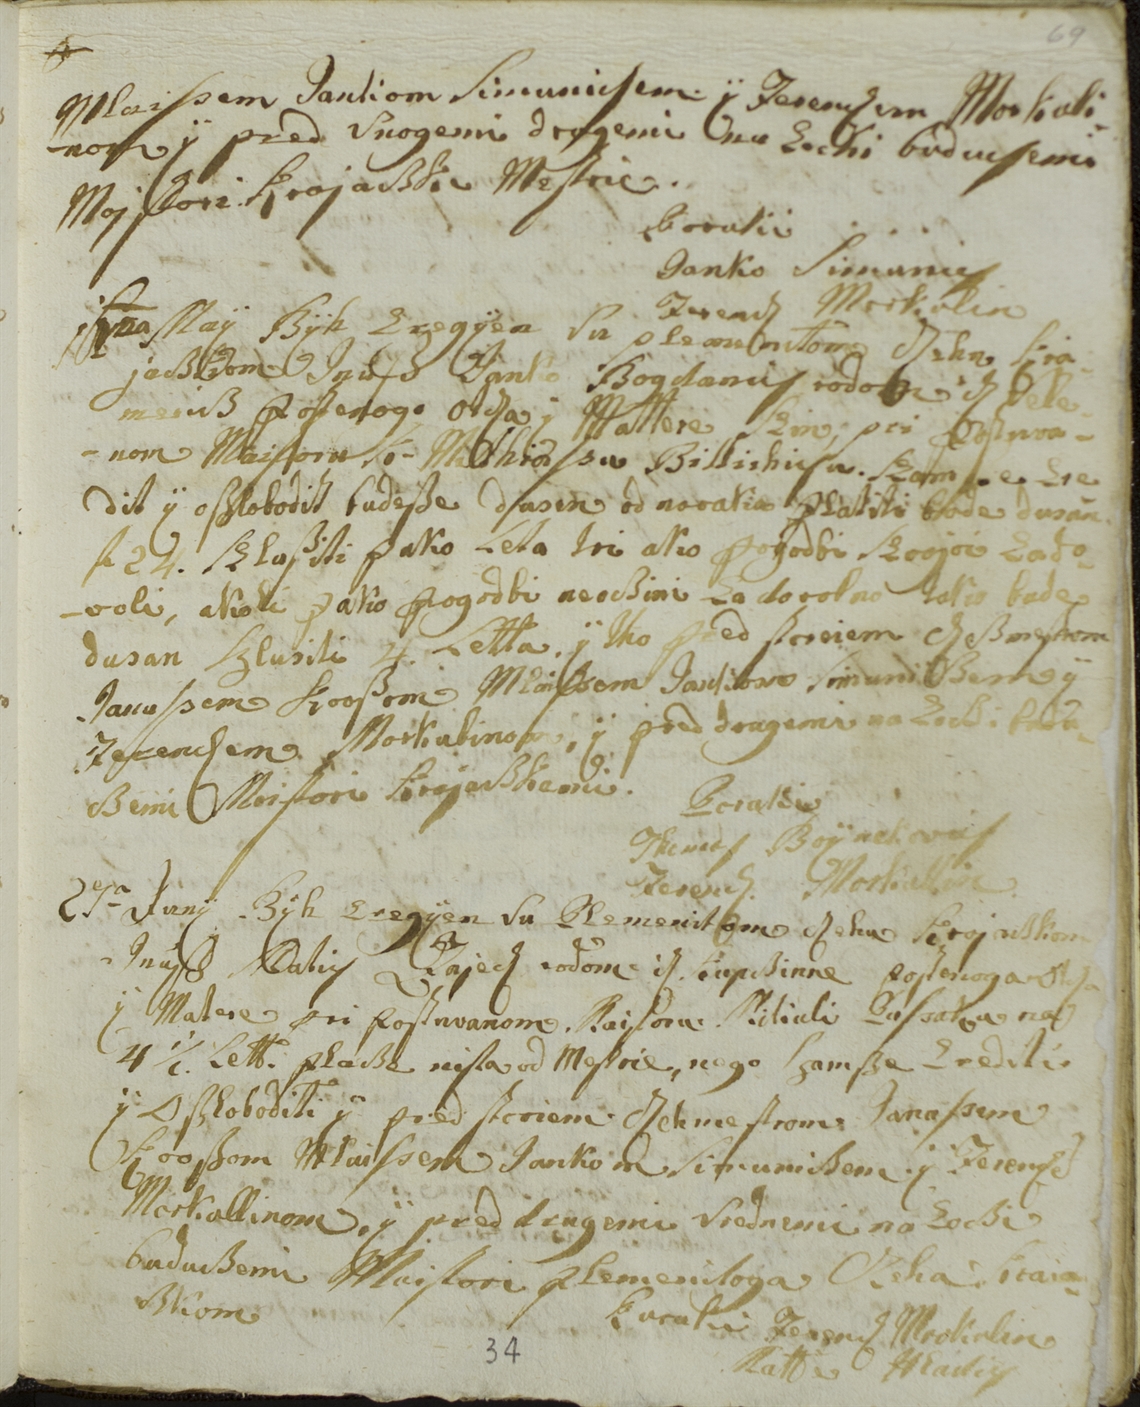 69
Mlaissem Jankom Simunichem ÿ Ferenczem Morkali-
nom ÿ pred vnogemi drugemi na Zochi buduchemi
Majstori krojachke Mestrie.
Boraki
Janko Simunich
Ferencz Morkalin
Istinaistÿ Bÿh Zregÿen vu plemenitom Czehu Kra-
jachkom Inuss Janko Bogdanich rodom iz Vele-
merich postenoga otcza ÿ Mattere szin, pri postuva-
nom Maistoru Mathiassu Billichichu. kam se Zre
dit ÿ oszlobodit budesse dusen od noraka platiti bude dusan
f 24. Szlusiti pako leta tri ako pogodbi szvojoi zado-
voli, akoli pako pogodbi neochini zadovolno tako bude
dusan szlusiti 4. Letta, ÿ tho pred starem Czehmestrom
Janussem Kroshom Mlaissem Jankom Simunichem ÿ
Ferenczem Morkalinom, ÿ pred drugemi na Zochi budu-
chemi Maistori krojachkemi.
Boraki
Thomas Boÿnekovich
Ferencz Morkallin
2ga Junÿ Bÿh Zregÿen vu Plemenitom Czehu Krojachkom
Inuss Matij Zajecz rodom iz Kupchinne postenoga otcza
ÿ Matere pri postuvanom Maistoru Mikuli Pussaku na
4 1/2. Lett. plache nista od Mestrie, nego szamsze Zrediti
ÿ Oszloboditi ÿ pred starem Czehmestrom Janussem
Kroshom Mlaissem Jankom Simunichem ÿ Ferencz
Morkallinom, ÿ pred drugemi vrednemi na Zochi
buduchemi Maistori plemenitoga Czeha Kraia-
chkom
Boraki Ferencz Morkalin
Matte Mladich
34